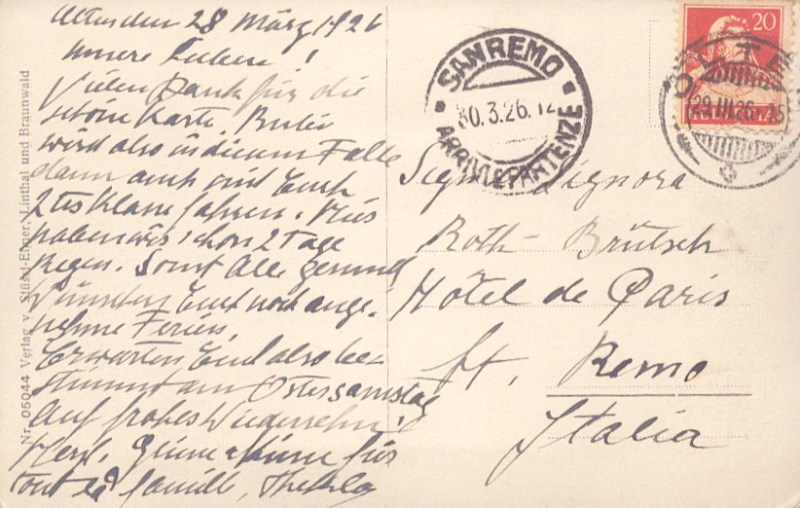 Olten den 28 März 1926
Unsere Lieben!
Vielen Dank für die
schöne Karte.
wird also in diesem Falle
dann auch mit Euch
2tes Klasse fahren.
haben wir schon 2 Tage
Regen. Sonst Alle gesund
Wünschen Euch noch ange-
nehme Ferien.
Erwarten Euch also be-
stimmt am Ostersamstag
Auf frohes Wiedersehn!
Herzl. Grüsse &
tout la famille, Thekla
Nr. 05044 Verlag v. Stüssi-Elmer, Linthal und Braunwald
SANREMO
30.3.26.12
ARRIVI E PARTENZE
20
OLTEN
29.III.26
Sigr. Signora
Roth-Brütsch
Hôtel de Paris
St. Remo
Italia